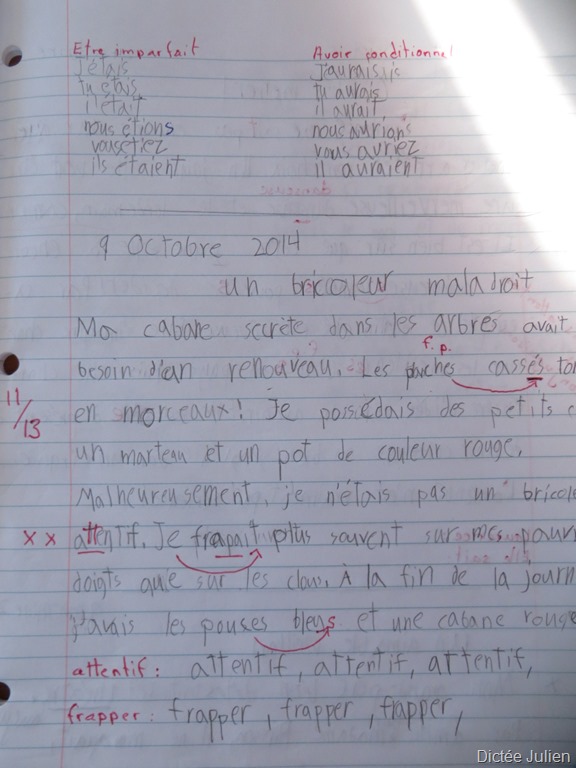 Etre imparfait Avoir conditionnel
j'étais j'aurais
tu étais tu aurais
il était il aurait
nous étions nous aurions
vous étiez vous auriez
ils étaient il auraient
9 Octobre 2014
un bricoleur maladroit
Ma cabane secrète dans les arbres avait
f.p.
besoin d'un renouveau. Les cassés
11/13 en morceaux! Je possédais des petits
un marteau et un pot de couleur rouge.
Malheureusement, je n'étais pas un
x x attentif. Je frapait plus souvent sur mes
doigts que sur les clous. À la fin de la
j'avais les pouses bleus et une cabane rouge
attentif: attentif, attentif, attentif,
frapper: frapper, frapper, frapper,
Dictée Julien